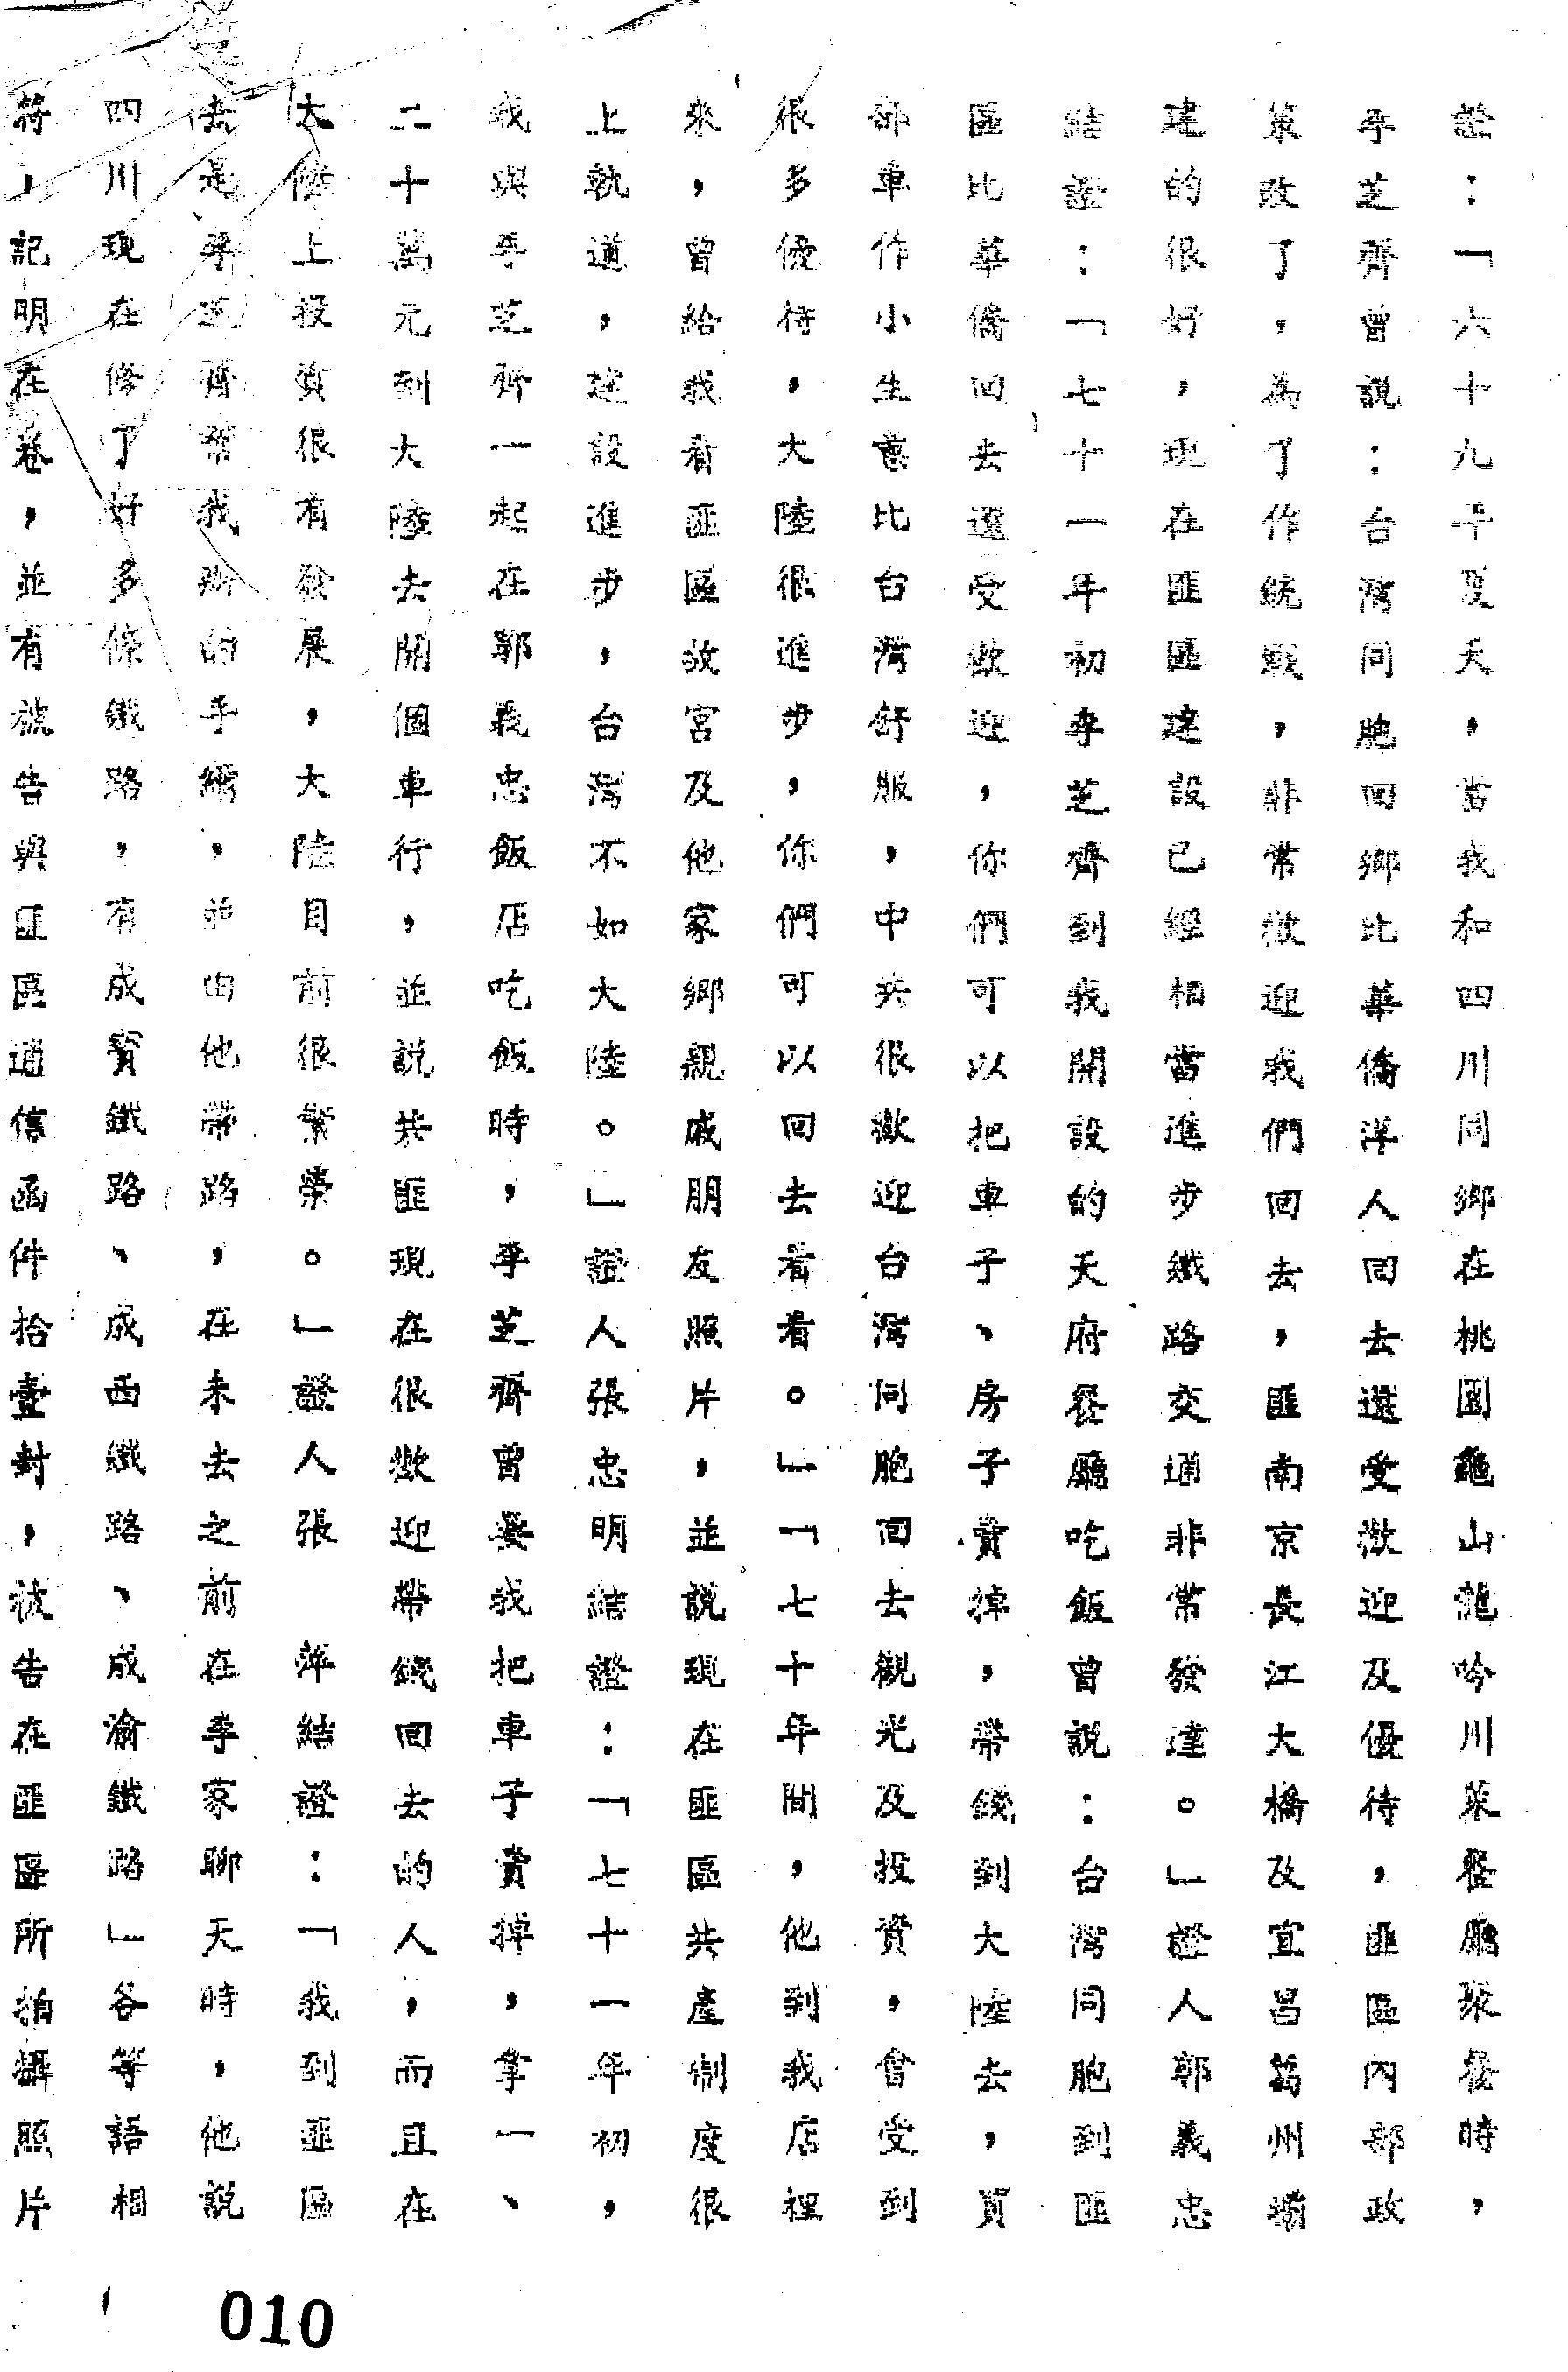 證：「六十九年夏天，當我和四川同鄉在桃園龜山龍吟川菜餐廳聚餐時，
李芝齊曾說：台灣同胞回鄉比華僑洋人回去還受歡迎及優待，匪區內部政
策改了，為了作統戰，非常歡迎我們回去，匪南京長江大橋及宜昌葛州壩
建的很好，現在匪區建設已經相當進步鐵路交通非常發達。」證人郭義忠
結證：「七十一年初李芝齊到我開設的天府餐廳吃飯曾說：台灣同胞到匪
區比華僑回去還受歡迎，你們可以把車子、房子賣掉，帶錢到大陸去，買
部車作小生意比台灣舒服，中共很歡迎台灣同胞回去觀光及投資，會受到
很多優待，大陸很進步，你們可以回去看看。」「七十年間，他到我店裡
來，曾給我看匪區故宮及他家鄉親戚朋友照片，並說現在匪區共產制度很
上軌道，建設進步，台灣不如大陸。」證人張忠明結證：「七十一年初，
我與李芝齊一起在郭義忠飯店吃飯時，李芝齊曾要我把車子賣掉，拿一、
二十萬元到大陸去開個車行，並說共匪現在很歡迎帶錢回去的人，而且在
大陸上投資很有發展，大陸目前很繁榮。」證人張　萍結證：「我到匪區
去是李芝齊幫我辦的手續，並由他帶路，在未去之前在李家聊天時，他說
四川現在修了好多條鐵路，有成寶鐵路、成西鐵路、成渝鐵路」各等語相
符，記明在卷，並有被告與匪區通信函件拾壹封，被告在匪區所拍攝照片
010